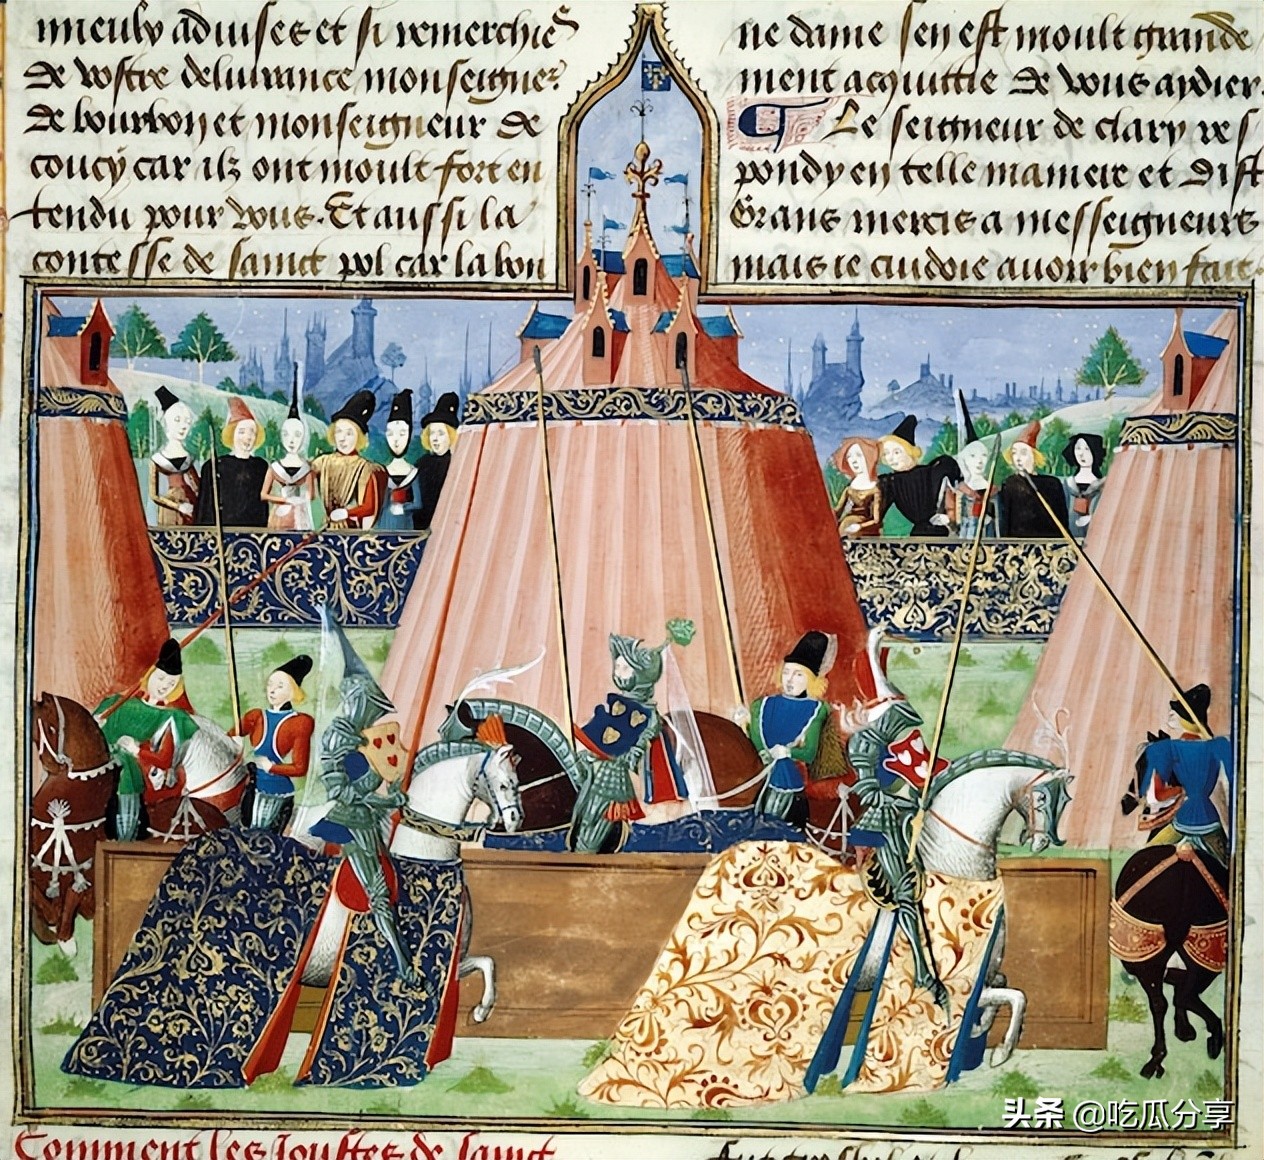 mieulx aduises et si remerchies
de vostre deliurance monseigneur
de bourbon et monseigneur de
coucy car ilz ont moult fort en
tendu pour vous. Et aussi la
contesse de sainct pol car la bon
ne dame sen est moult grande
ment acquittie de vous aydier.
Le seigneur de clary res
pondy en telle maniere et dist
Grans mercis a messeigneurs
mais ie cuidoie auoir bien fait.
Comment les Joustes de sainct
头条 @吃瓜分享